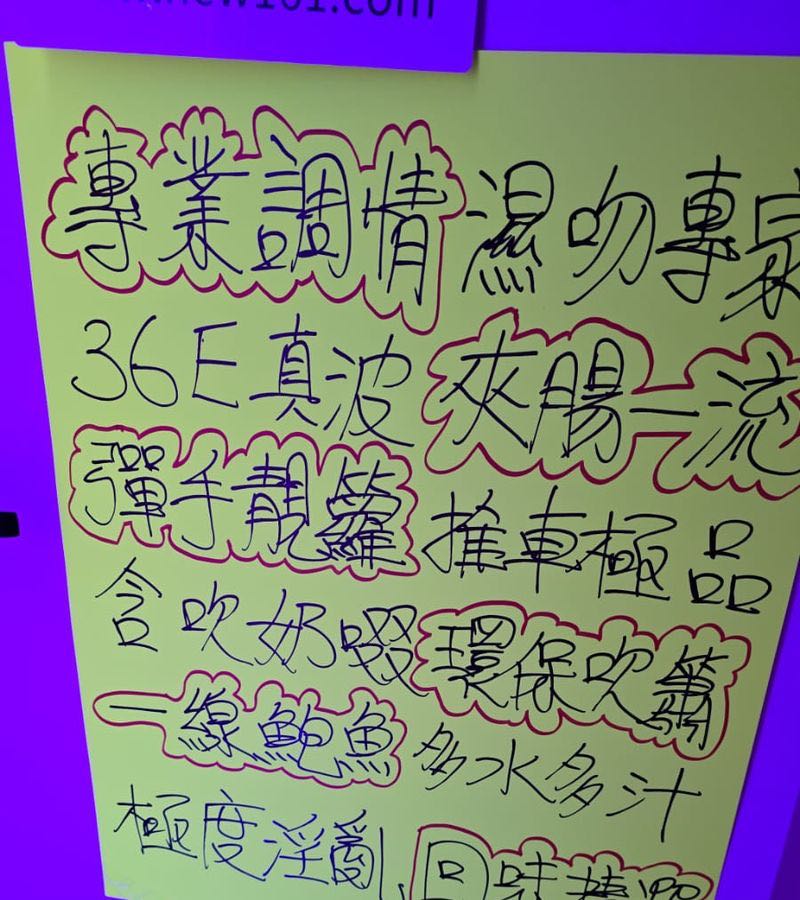 new101.com
專業調情 濕吻專家
36E真波 夾腸一流
彈手靚籮 推車極品
含吹奶啜 環保吹簫
一線鮑魚 多水多汁
極度淫亂 回味